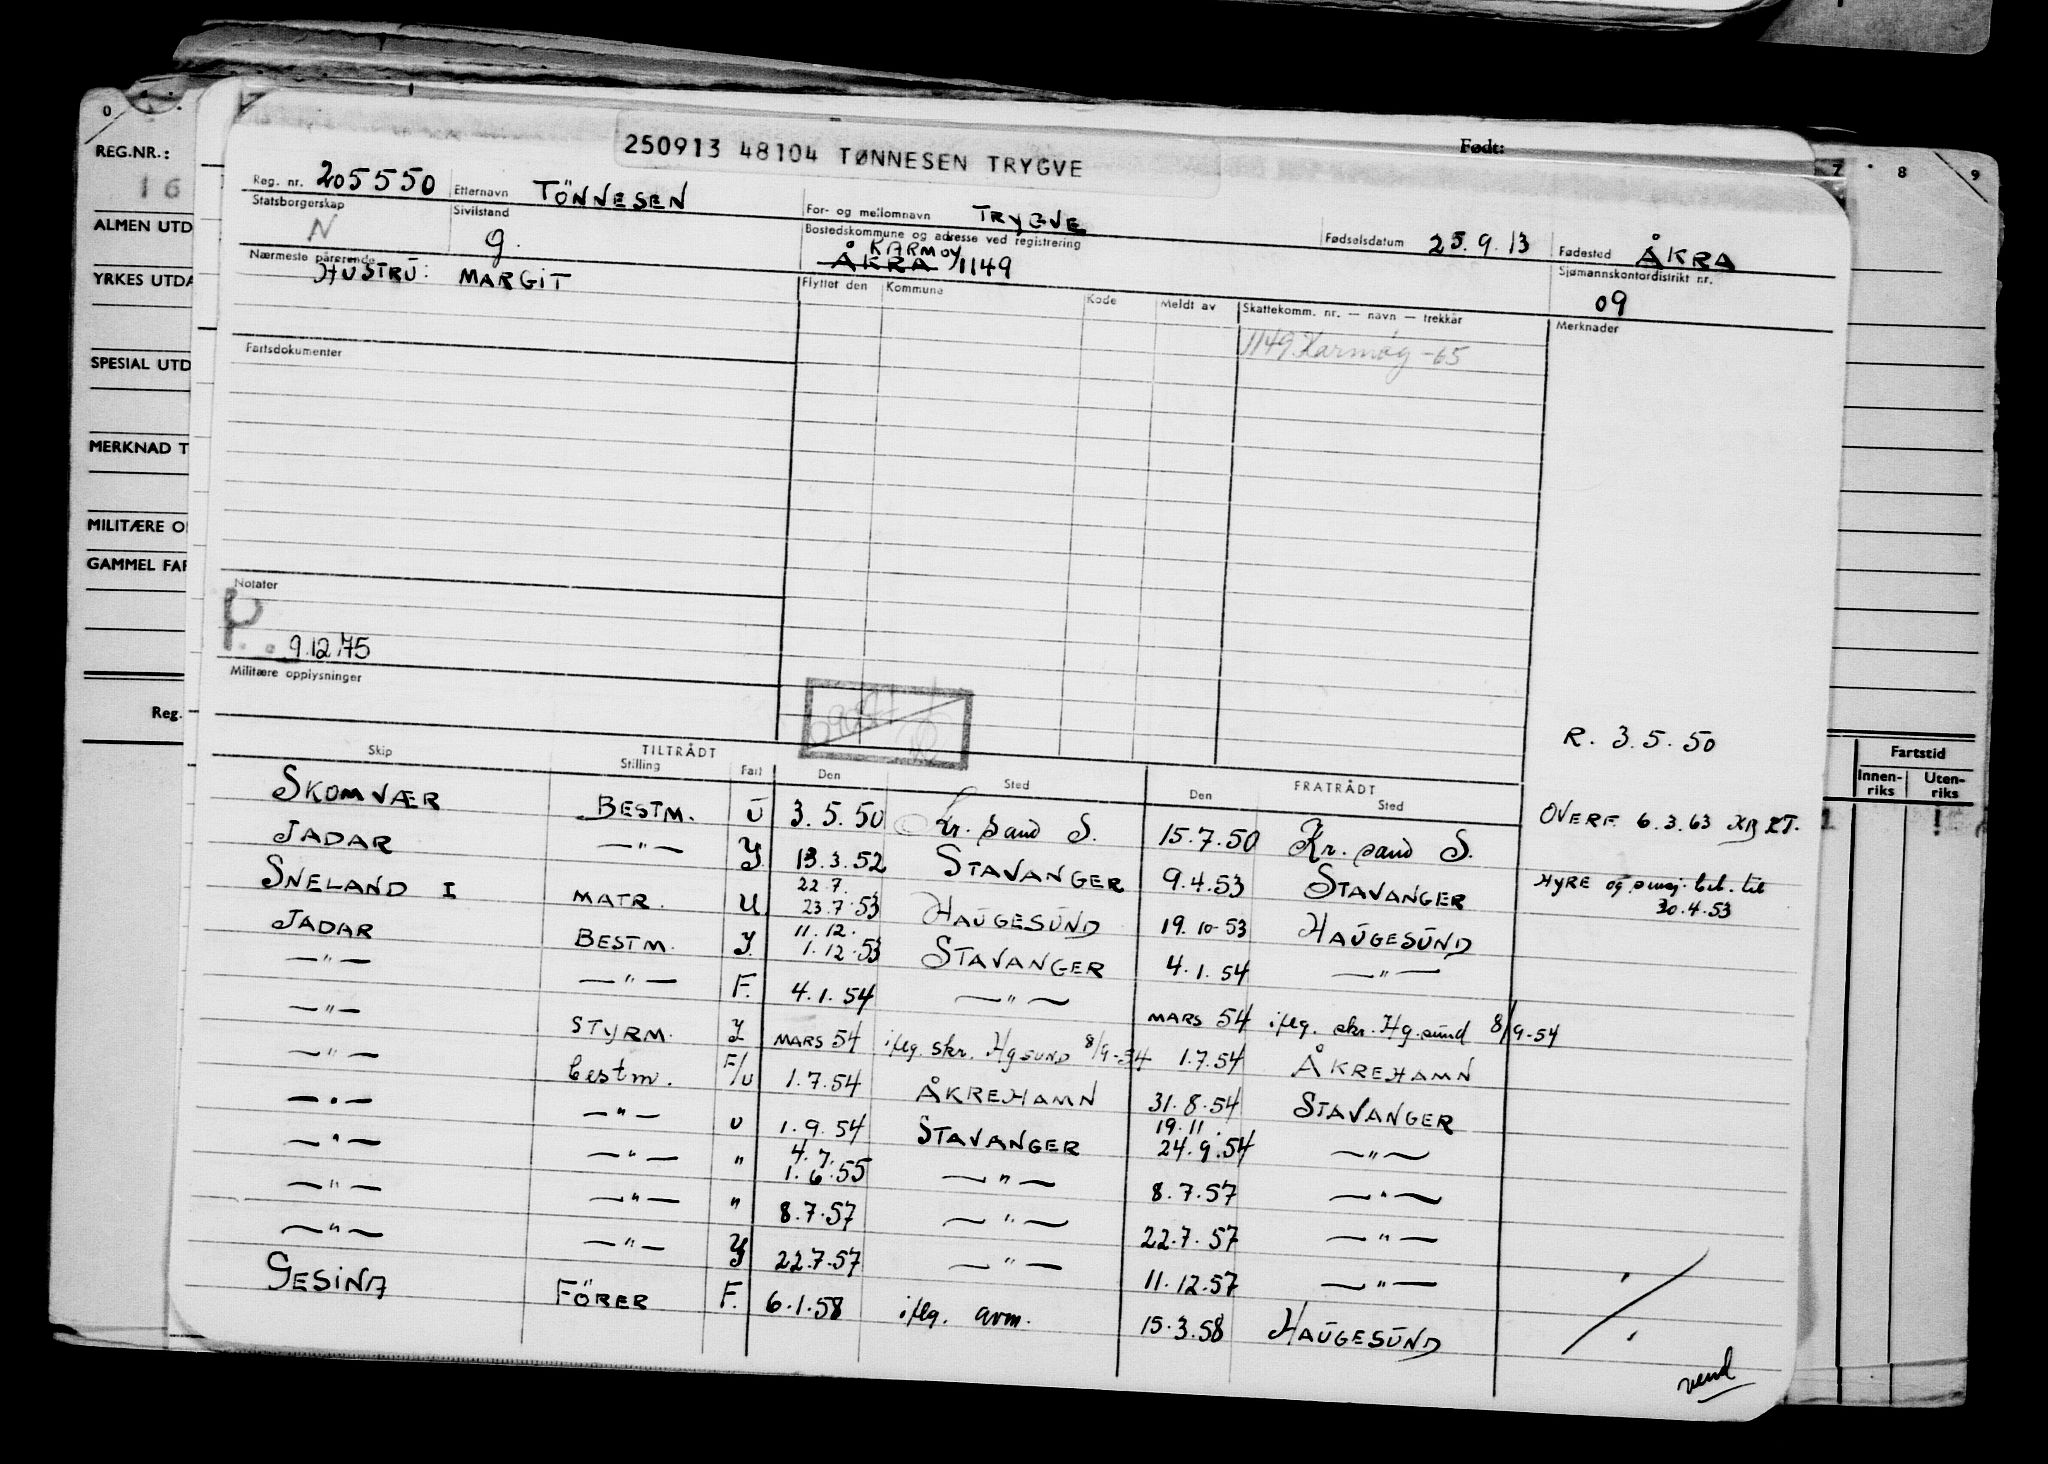 0 7 8 9
REG.NR.:
16
ALMEN UTD
YRKES UTDA
SPESIAL UTD
MERKNAD T
MILITÆRE O
GAMMEL FAR
Reg.
Fartstid
Innen-riks Uten-riks
Født:
250913 48104 TØNNESEN TRYGVE
Reg. nr. 205550 Etternavn TÖNNESEN For- og mellomnavn TRYGVE Fødselsdatum 25.9.13 Fødested ÅKRA
Statsborgerskap N Sivilstand g. Bostedskommune og adresse ved registrering ÅKRA KARMÖY 1149 Sjømannskontordistrikt nr. 09
Nærmeste pårørende HUSTRU: MARGIT
Flyttet den Kommune Kode Meldt av Skattekomm. nr. — navn — trekkår Merknader
1149 Karmøy -65
Fartsdokumenter
Notater
P.
9.12.75
Militære opplysninger
R. 3.5.50
TILTRÅDT FRATRÅDT
Skip Stilling Fart Den Sted Den Sted
SKOMVÆR BESTM. U 3.5.50 Kr. sand S. 15.7.50 Kr. sand S. OVERF. 6.3.63
JADAR —"— Y 13.3.52 STAVANGER 9.4.53 STAVANGER HYRE og til 30.4.53
SNELAND I MATR. U 22.7. 23.7.53 HAUGESUND 19.10-53 HAUGESUND
JADAR BESTM. Y. 11.12. 1.12.53 STAVANGER 4.1.54 —"—
—"— —"— F. 4.1.54 —"— MARS 54 iflg. skr. Hg.sund 8/9-54
—"— STYRM. Y MARS 54 iflg. skr. HgSUND 8/9-54 1.7.54 ÅKREHAMN
—"— bestm. F/U 1.7.54 ÅKREHAMN 31.8.54 STAVANGER
—"— —"— U 1.9.54 STAVANGER 19.11. 24.9.54 —"—
—"— —"— " 4.7. 1.6.55 —"— 8.7.57 —"—
—"— —"— " 8.7.57 —"— 22.7.57 —"—
—"— —"— Y 22.7.57 —"— 11.12.57 —"—
GESINA FÖRER F. 6.1.58 iflg. avm. 15.3.58 HAUGESUND
vend